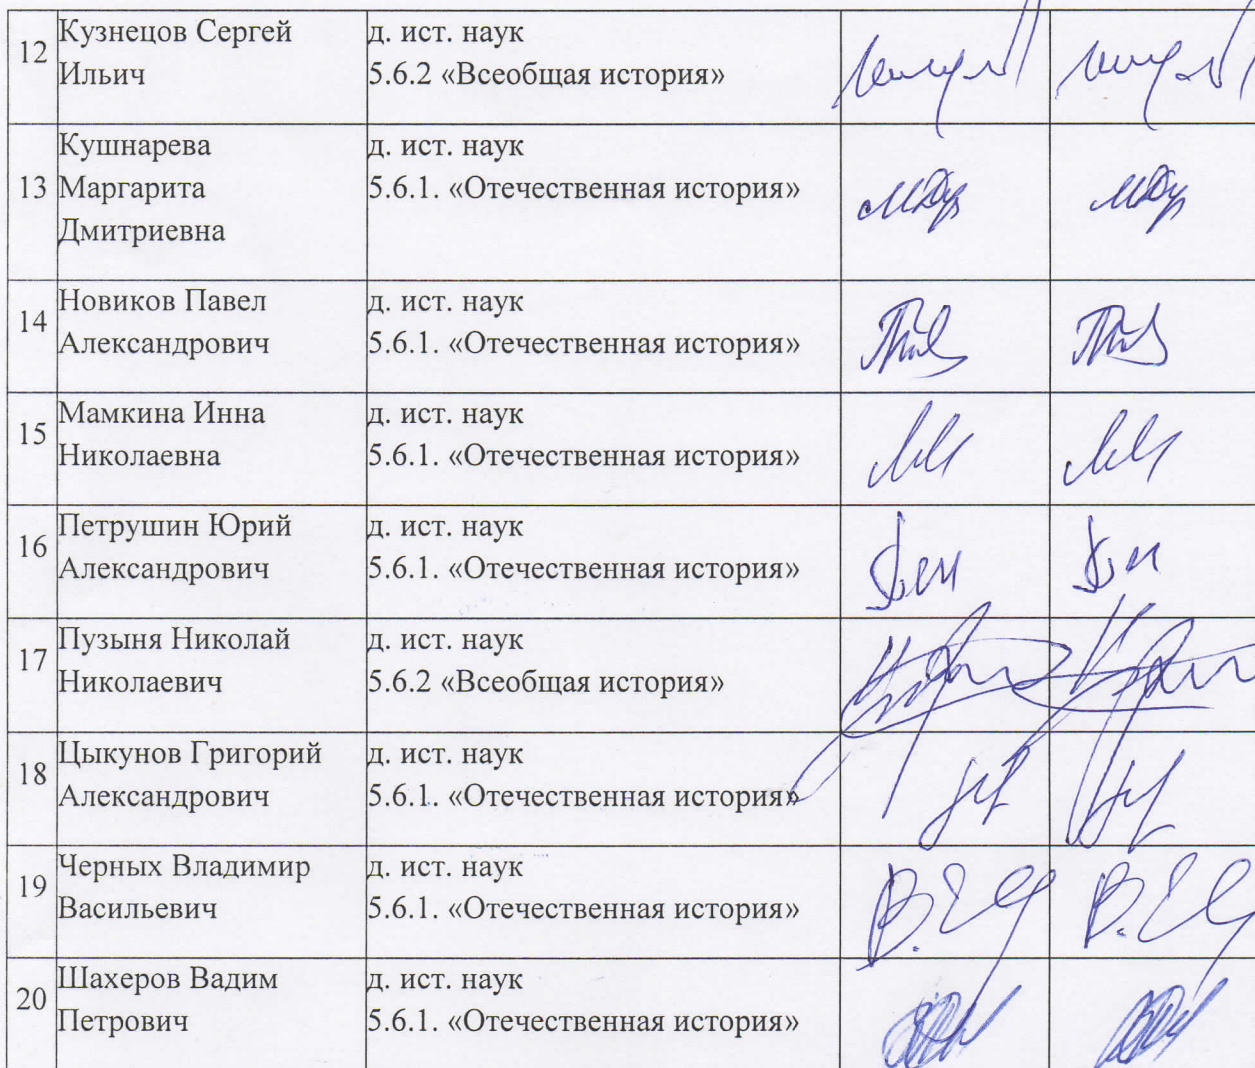 12
Кузнецов Сергей
Ильич
д. ист. наук
5.6.2 «Всеобщая история»
13
Кушнарева
Маргарита
Дмитриевна
д. ист. наук
5.6.1. «Отечественная история»
14
Новиков Павел
Александрович
д. ист. наук
5.6.1. «Отечественная история»
15
Мамкина Инна
Николаевна
д. ист. наук
5.6.1. «Отечественная история»
16
Петрушин Юрий
Александрович
д. ист. наук
5.6.1. «Отечественная история»
17
Пузыня Николай
Николаевич
д. ист. наук
5.6.2 «Всеобщая история»
18
Цыкунов Григорий
Александрович
д. ист. наук
5.6.1. «Отечественная история»
19
Черных Владимир
Васильевич
д. ист. наук
5.6.1. «Отечественная история»
20
Шахеров Вадим
Петрович
д. ист. наук
5.6.1. «Отечественная история»